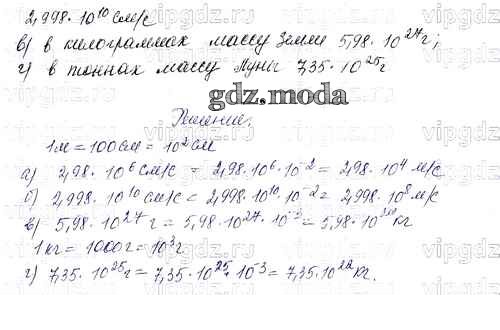 2,998 · 10¹⁰ см/с
в) в килограммах массу Земли 5,98 · 10²⁷ г;
г) в тоннах массу Луны 7,35 · 10²⁵ г
gdz.moda
Решение.
1м = 100см = 10² см
а) 2,98 · 10⁶ см/с = 2,98 · 10⁶ · 10⁻² = 2,98 · 10⁴ м/с
б) 2,998 · 10¹⁰ см/с = 2,998 · 10¹⁰ · 10⁻² = 2,998 · 10⁸ м/с
в) 5,98 · 10²⁷ г = 5,98 · 10²⁷ · 10⁻³ = 5,98 · 10 кг
1 кг = 1000г = 10³ г
г) 7,35 · 10²⁵ г = 7,35 · 10²⁵ · 10⁻³ = 7,35 · 10²² кг.
vipgdz.ru